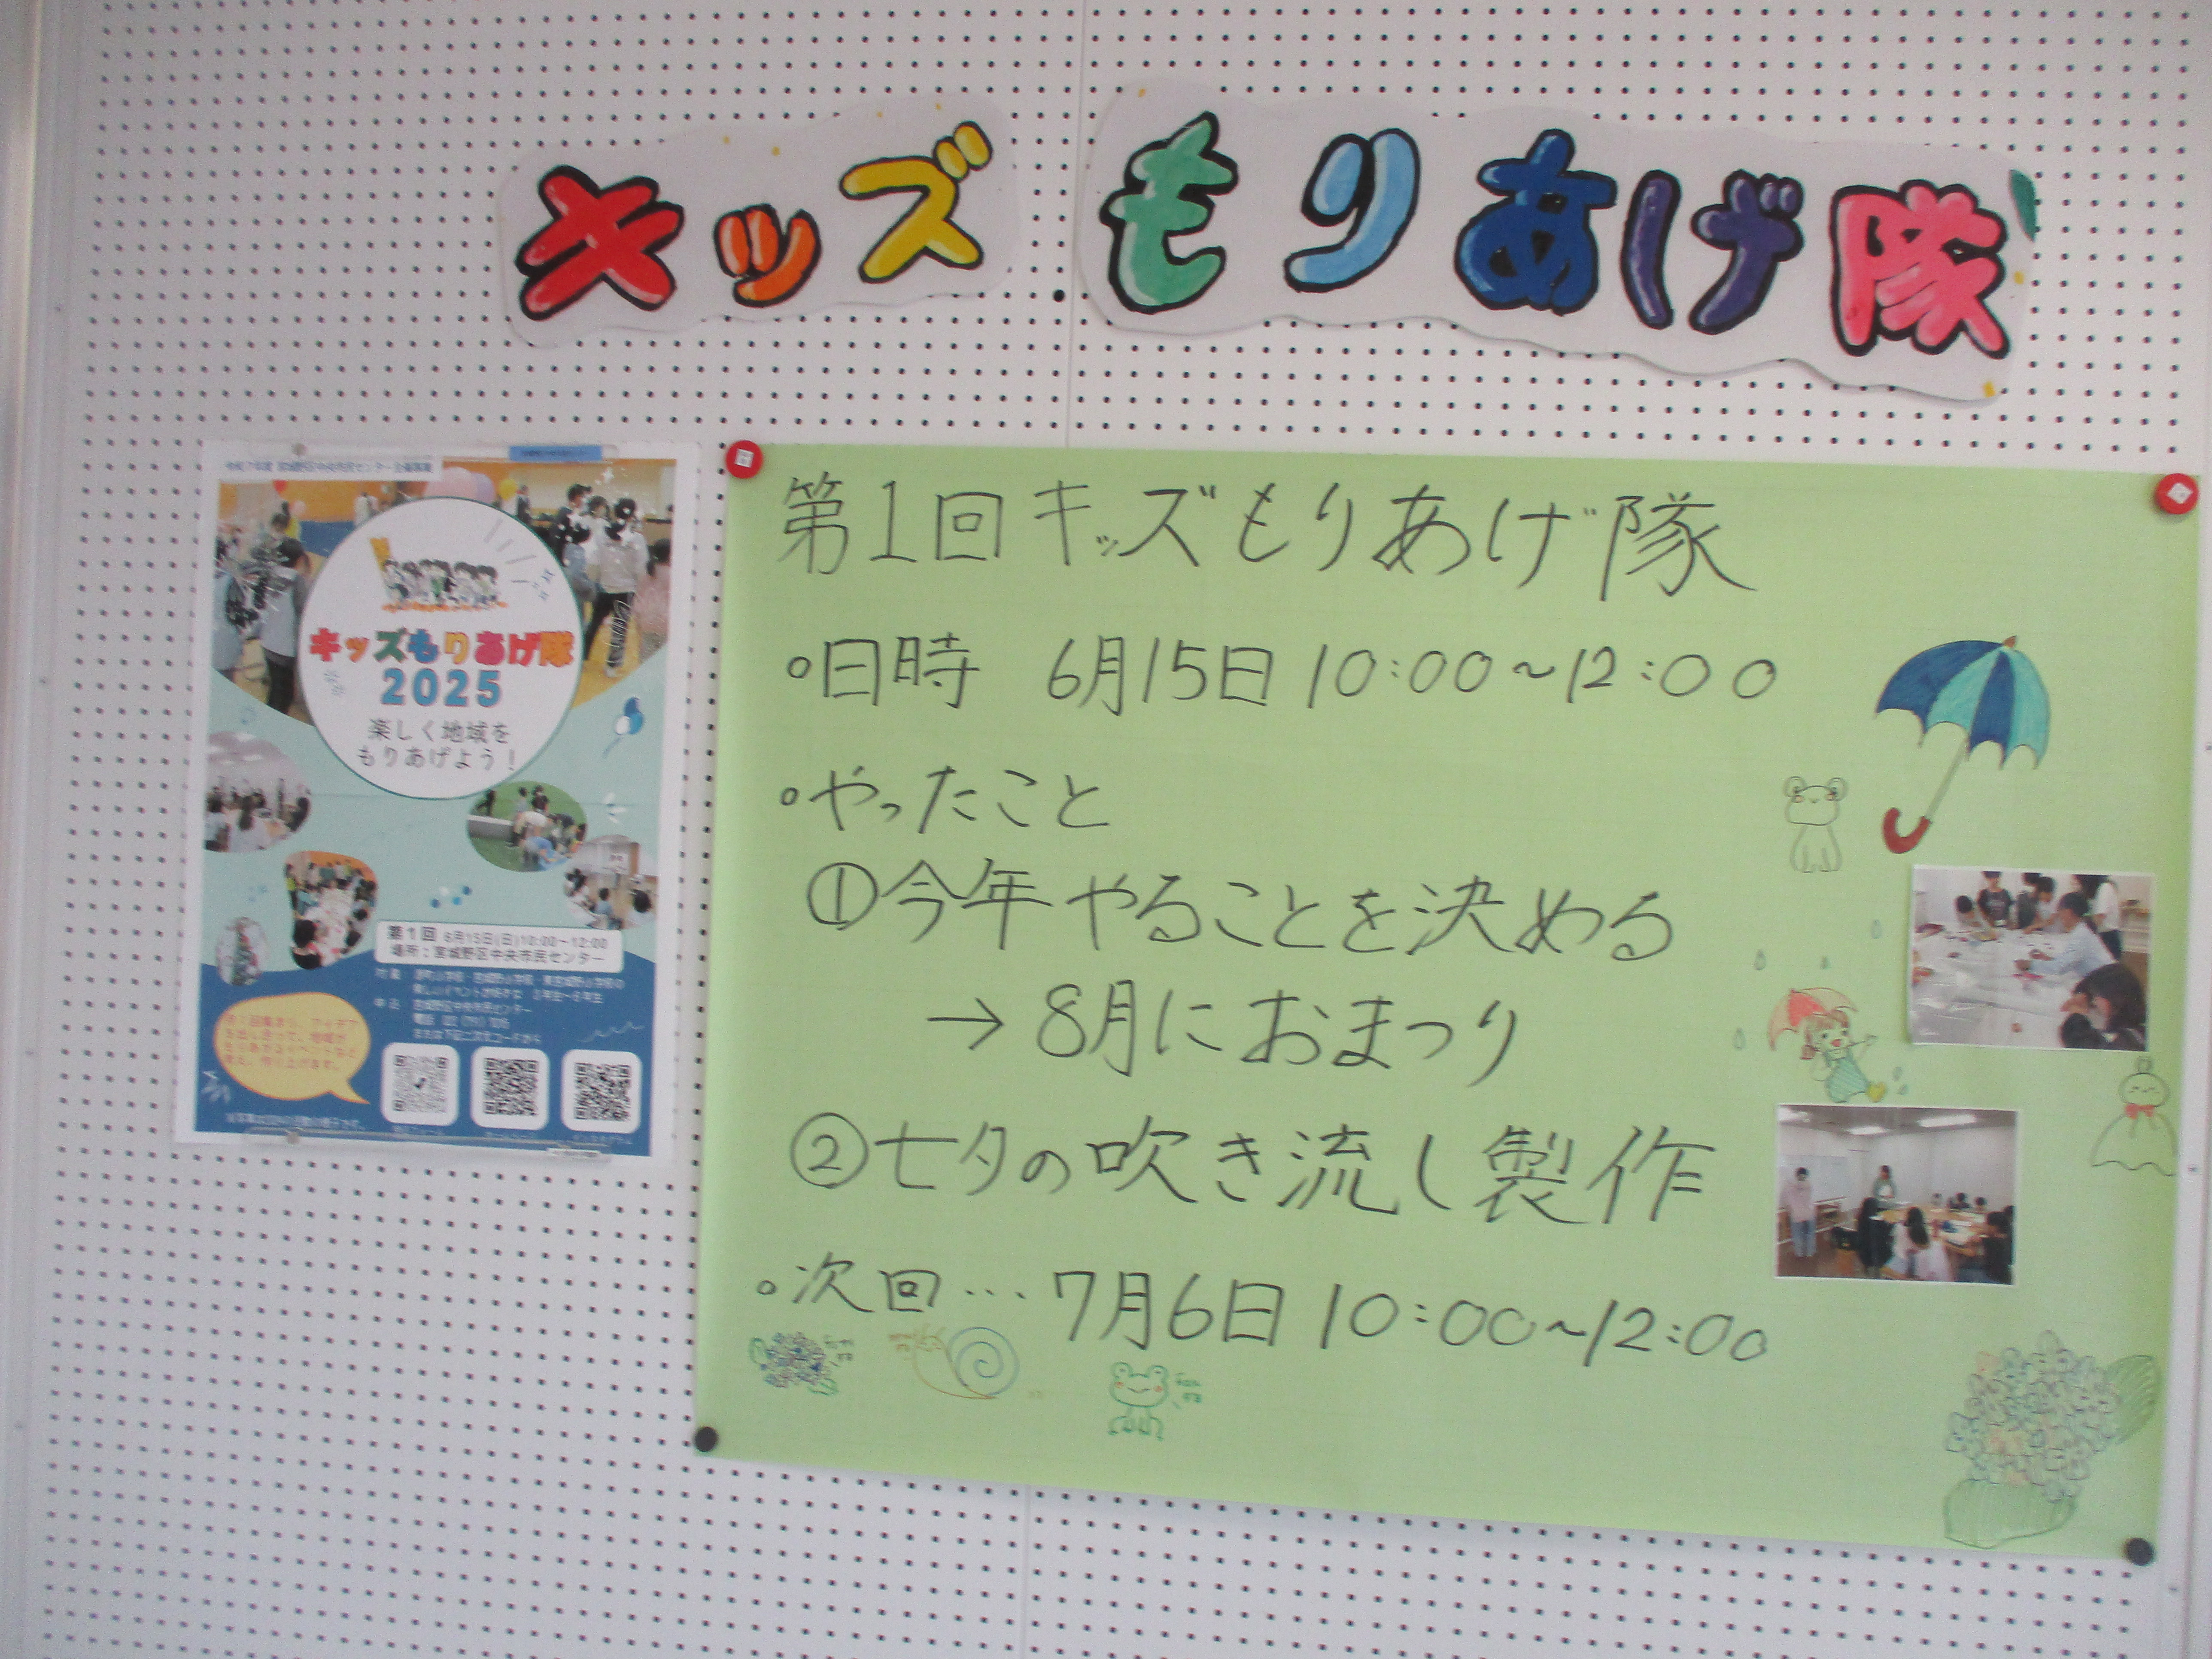 キッズもりあげ隊
令和7年度 宮城野区中央市民センター主催事業
キッズもりあげ隊
2025
楽しく地域を
もりあげよう!
第1回 6月15日(日)10:00~12:00
場所:宮城野区中央市民センター
第1回キッズもりあげ隊
○日時 6月15日 10:00~12:00
○やったこと
①今年やることを決める
→8月におまつり
②七夕の吹き流し製作
○次回…7月6日 10:00~12:00